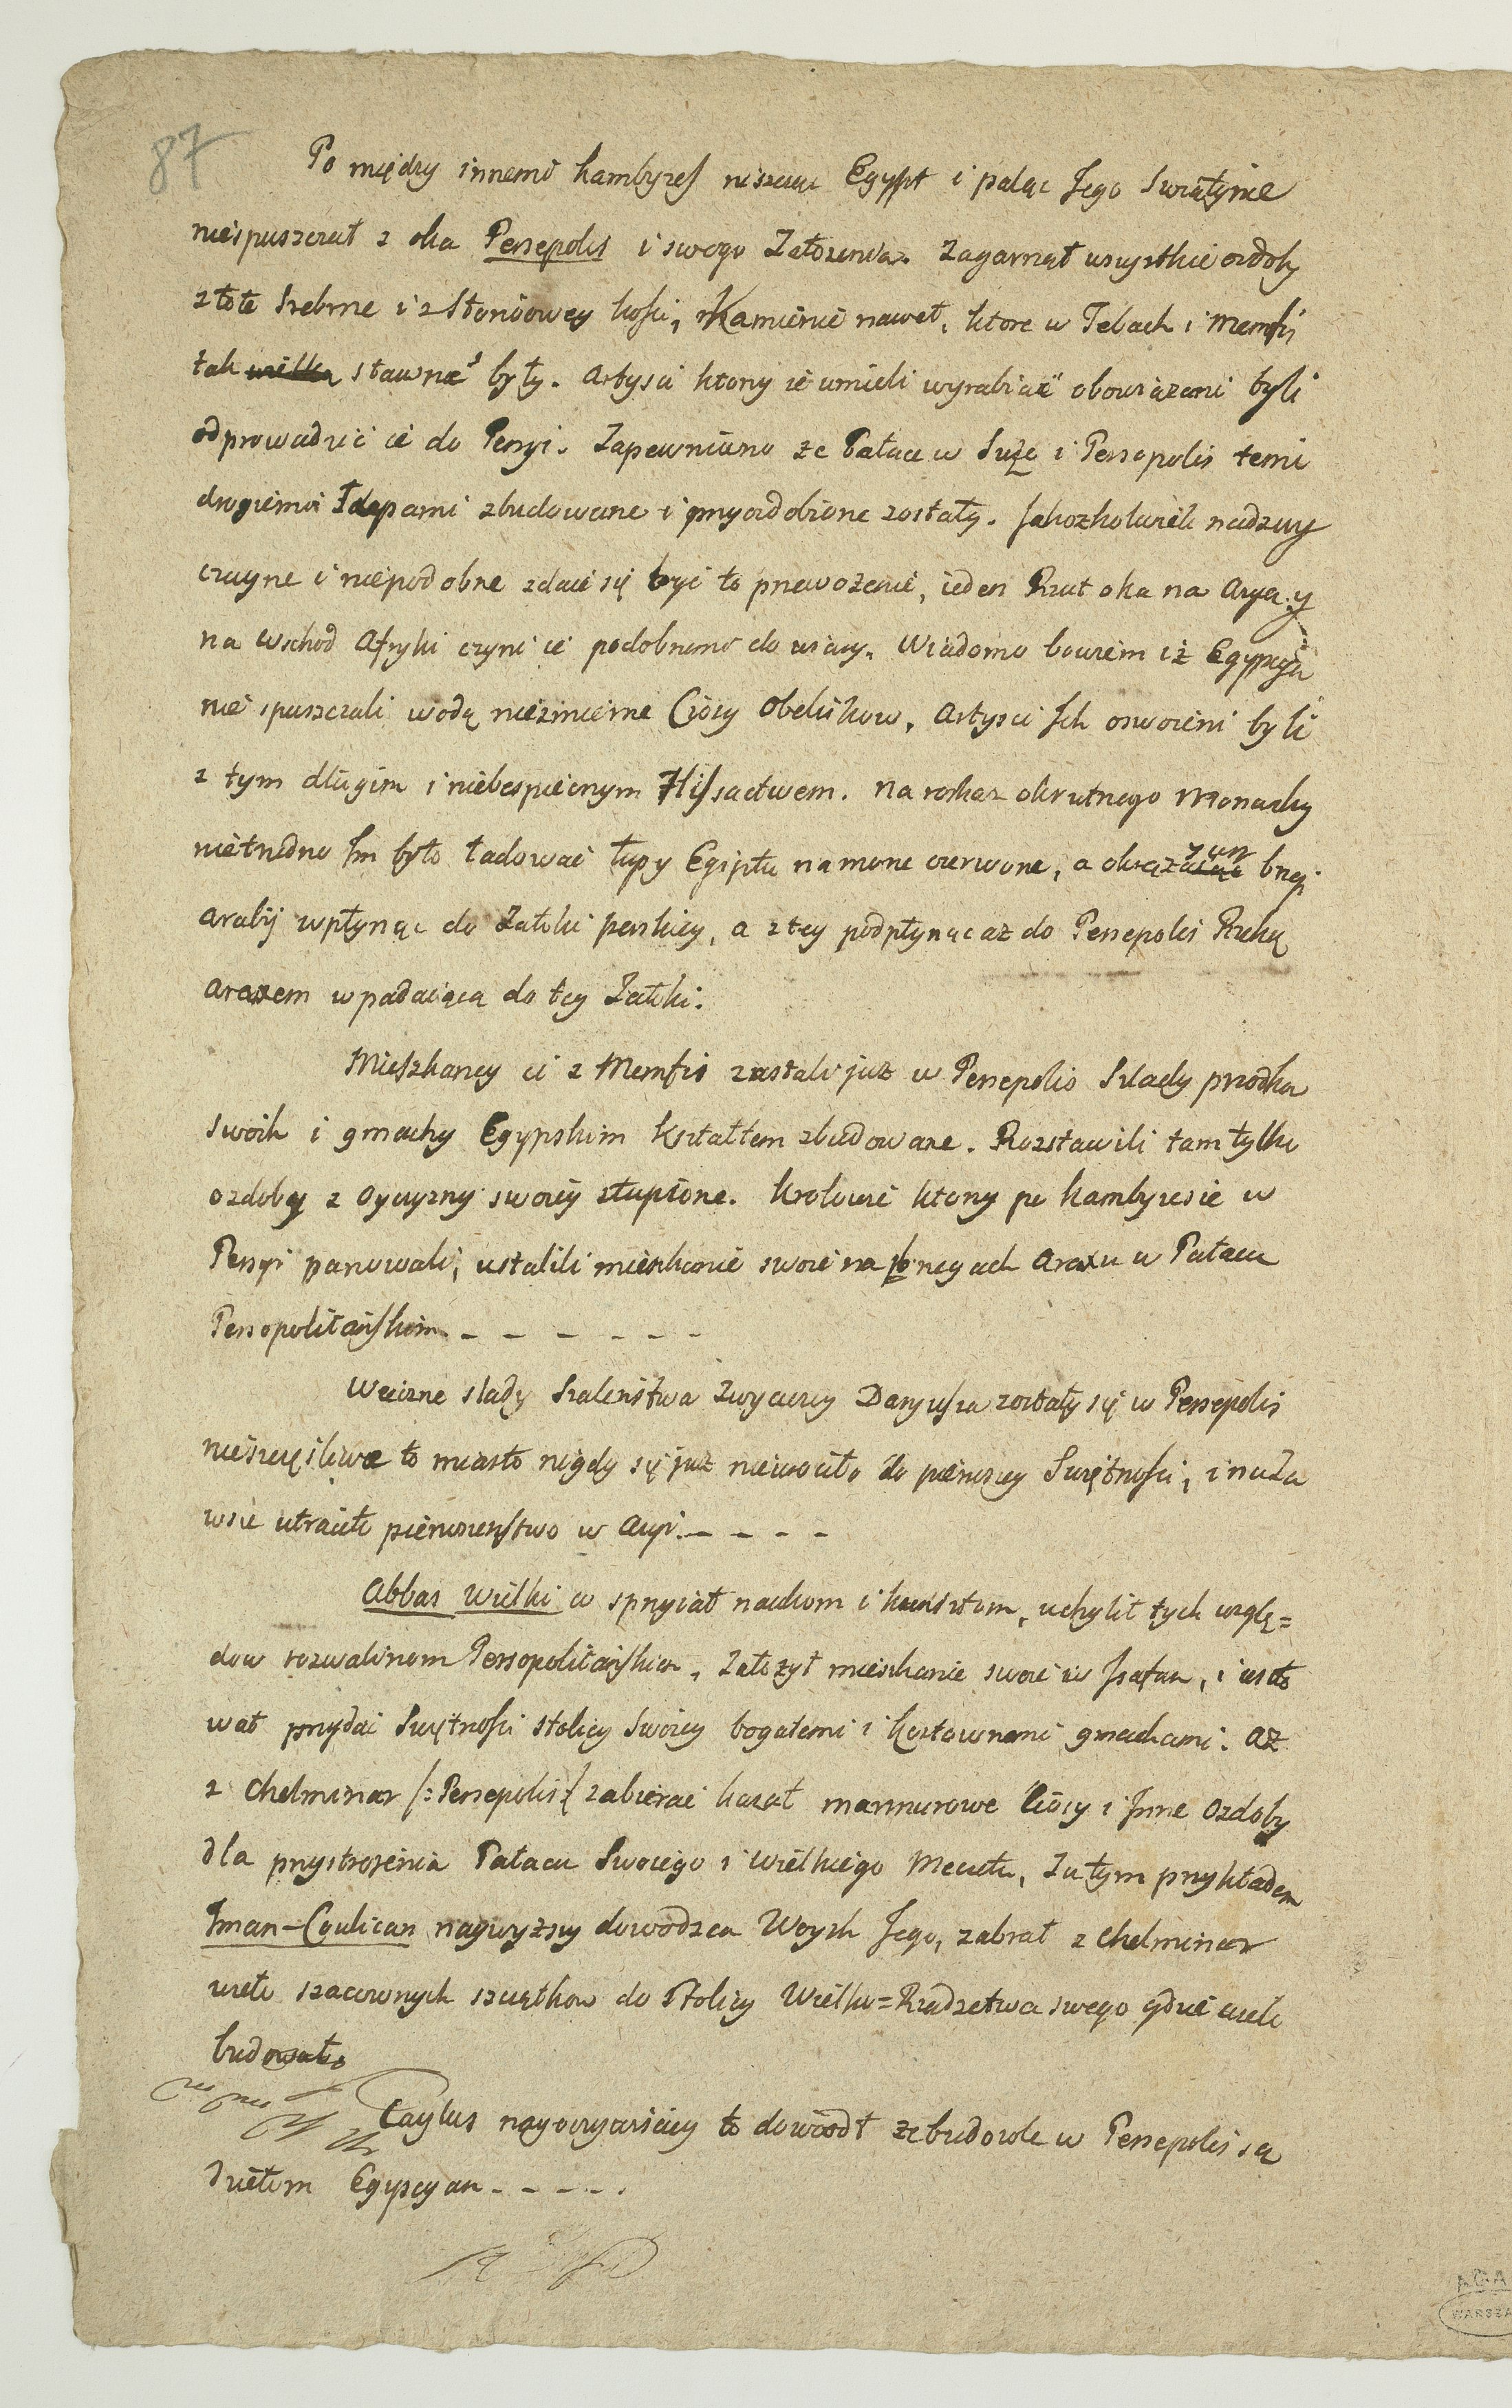 87
Po między innemi kambyzes niszcząc Egypt i paląc Jego Swiątynie
niespuszczał z oka Persepolis i swego Założenia. Zagarnął wszystkie ozdoby
złote srebrne i z Słoniowey kości, Kamienie nawet, ktore w Tebach i Memfis
tak wielka sławne były. Artysci ktorzy ie umieli wyrabiać obowiązani byli
odprowadzić ie do Persyi. Zapewniano ze Pałace w Suze i Persepolis temi
drogiemi łupami zbudowane i przyozdobione zostały. Jakozkolwiek nadzwy
czayne i niepodobne zdaie się być to przewożenie, ieden Rzut oka na Azyą y
na Wschod Afryki czyni ie podobnemi do wiary. Wiadomo bowiem iż Egypcya
nie spuszczali wodą niezmierne Ciosy Obeliskow, Artysci Ich oswoieni byli
z tym długim i niebespiecznym Flisactwem. Na roskaz okrutnego Monarchy
nietrudno Im było ładować łupy Egiptu na morze czerwone, a okrążaiąc brzegi
Arabij wpłynąć do Zatoki perskiey, a z tey podpłynąć az do Persepolis Rzeką
Araxem wpadaiącą do tey Zatoki.
Mieszkancy ci z Memfis zastali juz w Persepolis Slady przodka
swoich i gmachy Egypskim kształtem zbudowane. Rozstawili tam tylko
ozdoby z Oyczyzny swoiey złupione. Krolowie ktorzy po kambyzesie w
Persyi panowali, ustalili mieszkanie swoie na brzegach Araxu w Pałacu
Persopolitańskim. – – – – – –
Wieczne slady Szaleństwa Zwycięzcy Daryusza zostały się w Persepolis
nieszczęśliwe to miasto nigdy się juz niewrociło do pierwszey Swiętności, i na Za
wsze utraciło pierwszeństwo w Azyi. – – – –
Abbas Wielki co sprzyiał naukom i kunsztom, uchylił tych wzglę=
dow rozwalinom Persopolitańskim, Założył mieszkanie swoie w Isafan, i usiło
wał przydać Swiętności stolicy Swoiey bogatemi i kosztownemi gmachami. Aż
z Chelminar /: Persepolis :/ zabierać kazał marmurowe Ciosy i Inne Ozdoby
dla przystroienia Pałacu Swoiego i wielkiego Meczetu, Za tym przykładem
Iman-Coulican naywyzszy dowodzca Woysk Jego, zabrał z Chelminar
wiele szacownych szczątkow do Stolicy Wielko=Rządzctwa swego gdzie wiele
budowało
Caylus nayoczywisciey to dowiodł ze budowle w Persepolis są
dziełem Egypcyan – – – – .